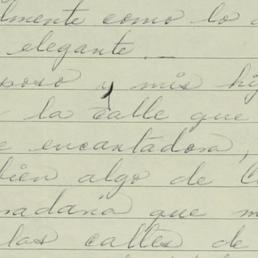 lmente como lo
elegante. —
poso y mis hi
la calle que
e encantadora,
bien algo de C
nadana que m
las calles de